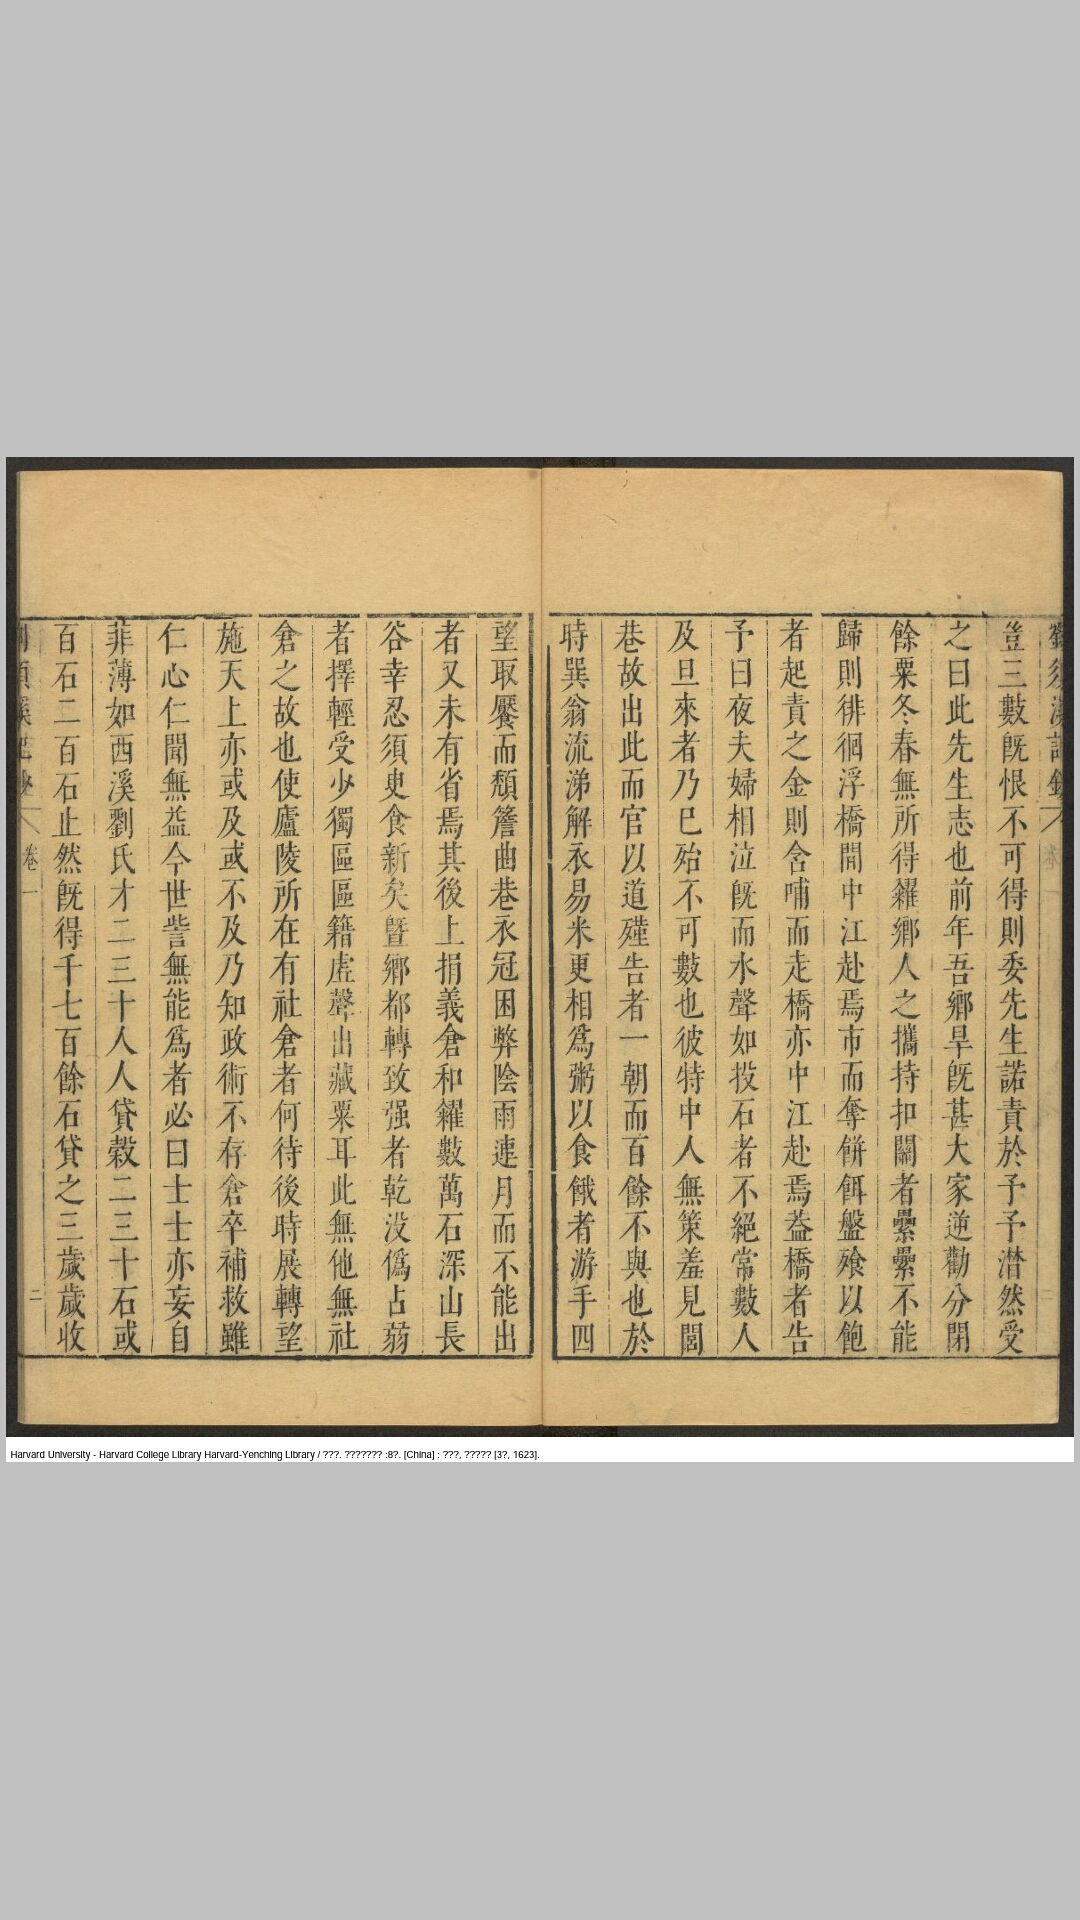 豈三數旣恨不可得則委先生諾責於予予潸然受
之曰此先生志也前年吾鄉旱旣甚大家逆勸分閉
餘粟冬春無所得糴鄉人之攜持扣關者纍纍不能
歸則徘徊浮橋間中江赴焉市而奪餅餌盤飱以飽
者起責之金則含哺而走橋亦中江赴焉葢橋者告
予曰夜夫婦相泣旣而水聲如投石者不絕常數人
及旦來者乃巳殆不可數也彼特中人無策羞見閭
巷故出此而官以道殣告者一朝而百餘不與也於
時巽翁流涕解衣易米更相爲粥以食餓者游手四
望取饜而頹簷曲巷衣冠困弊陰雨連月而不能出
者又未有省焉其後上捐義倉和糴數萬石深山長
谷幸忍須臾食新矣曁鄉都轉致强者乾没僞占弱
者擇輕受少獨區區籍虛聲出藏粟耳此無他無社
倉之故也使廬陵所在有社倉者何待後時展轉望
施天上亦或及或不及乃知政術不存倉卒補救雖
仁心仁聞無益今世訾無能爲者必曰士士亦妄自
菲薄如西溪劉氏才二三十人人貸穀二三十石或
百石二百石止然旣得千七百餘石貸之三歲歲收
卷一
二